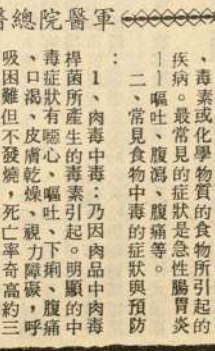 醫總院醫軍
、毒素或化學物質的食物所引起的
疾病。最常見的症狀是急性腸胃炎
——嘔吐、腹瀉、腹痛等。
二、常見食物中毒的症狀與預防
：
1、肉毒中毒：乃因肉品中肉毒
桿菌所產生的毒素引起。明顯的中
毒症狀有噁心、嘔吐、下痢、腹痛
、口渴、皮膚乾燥、視力障礙，呼
吸困難但不發燒，死亡率奇高約三